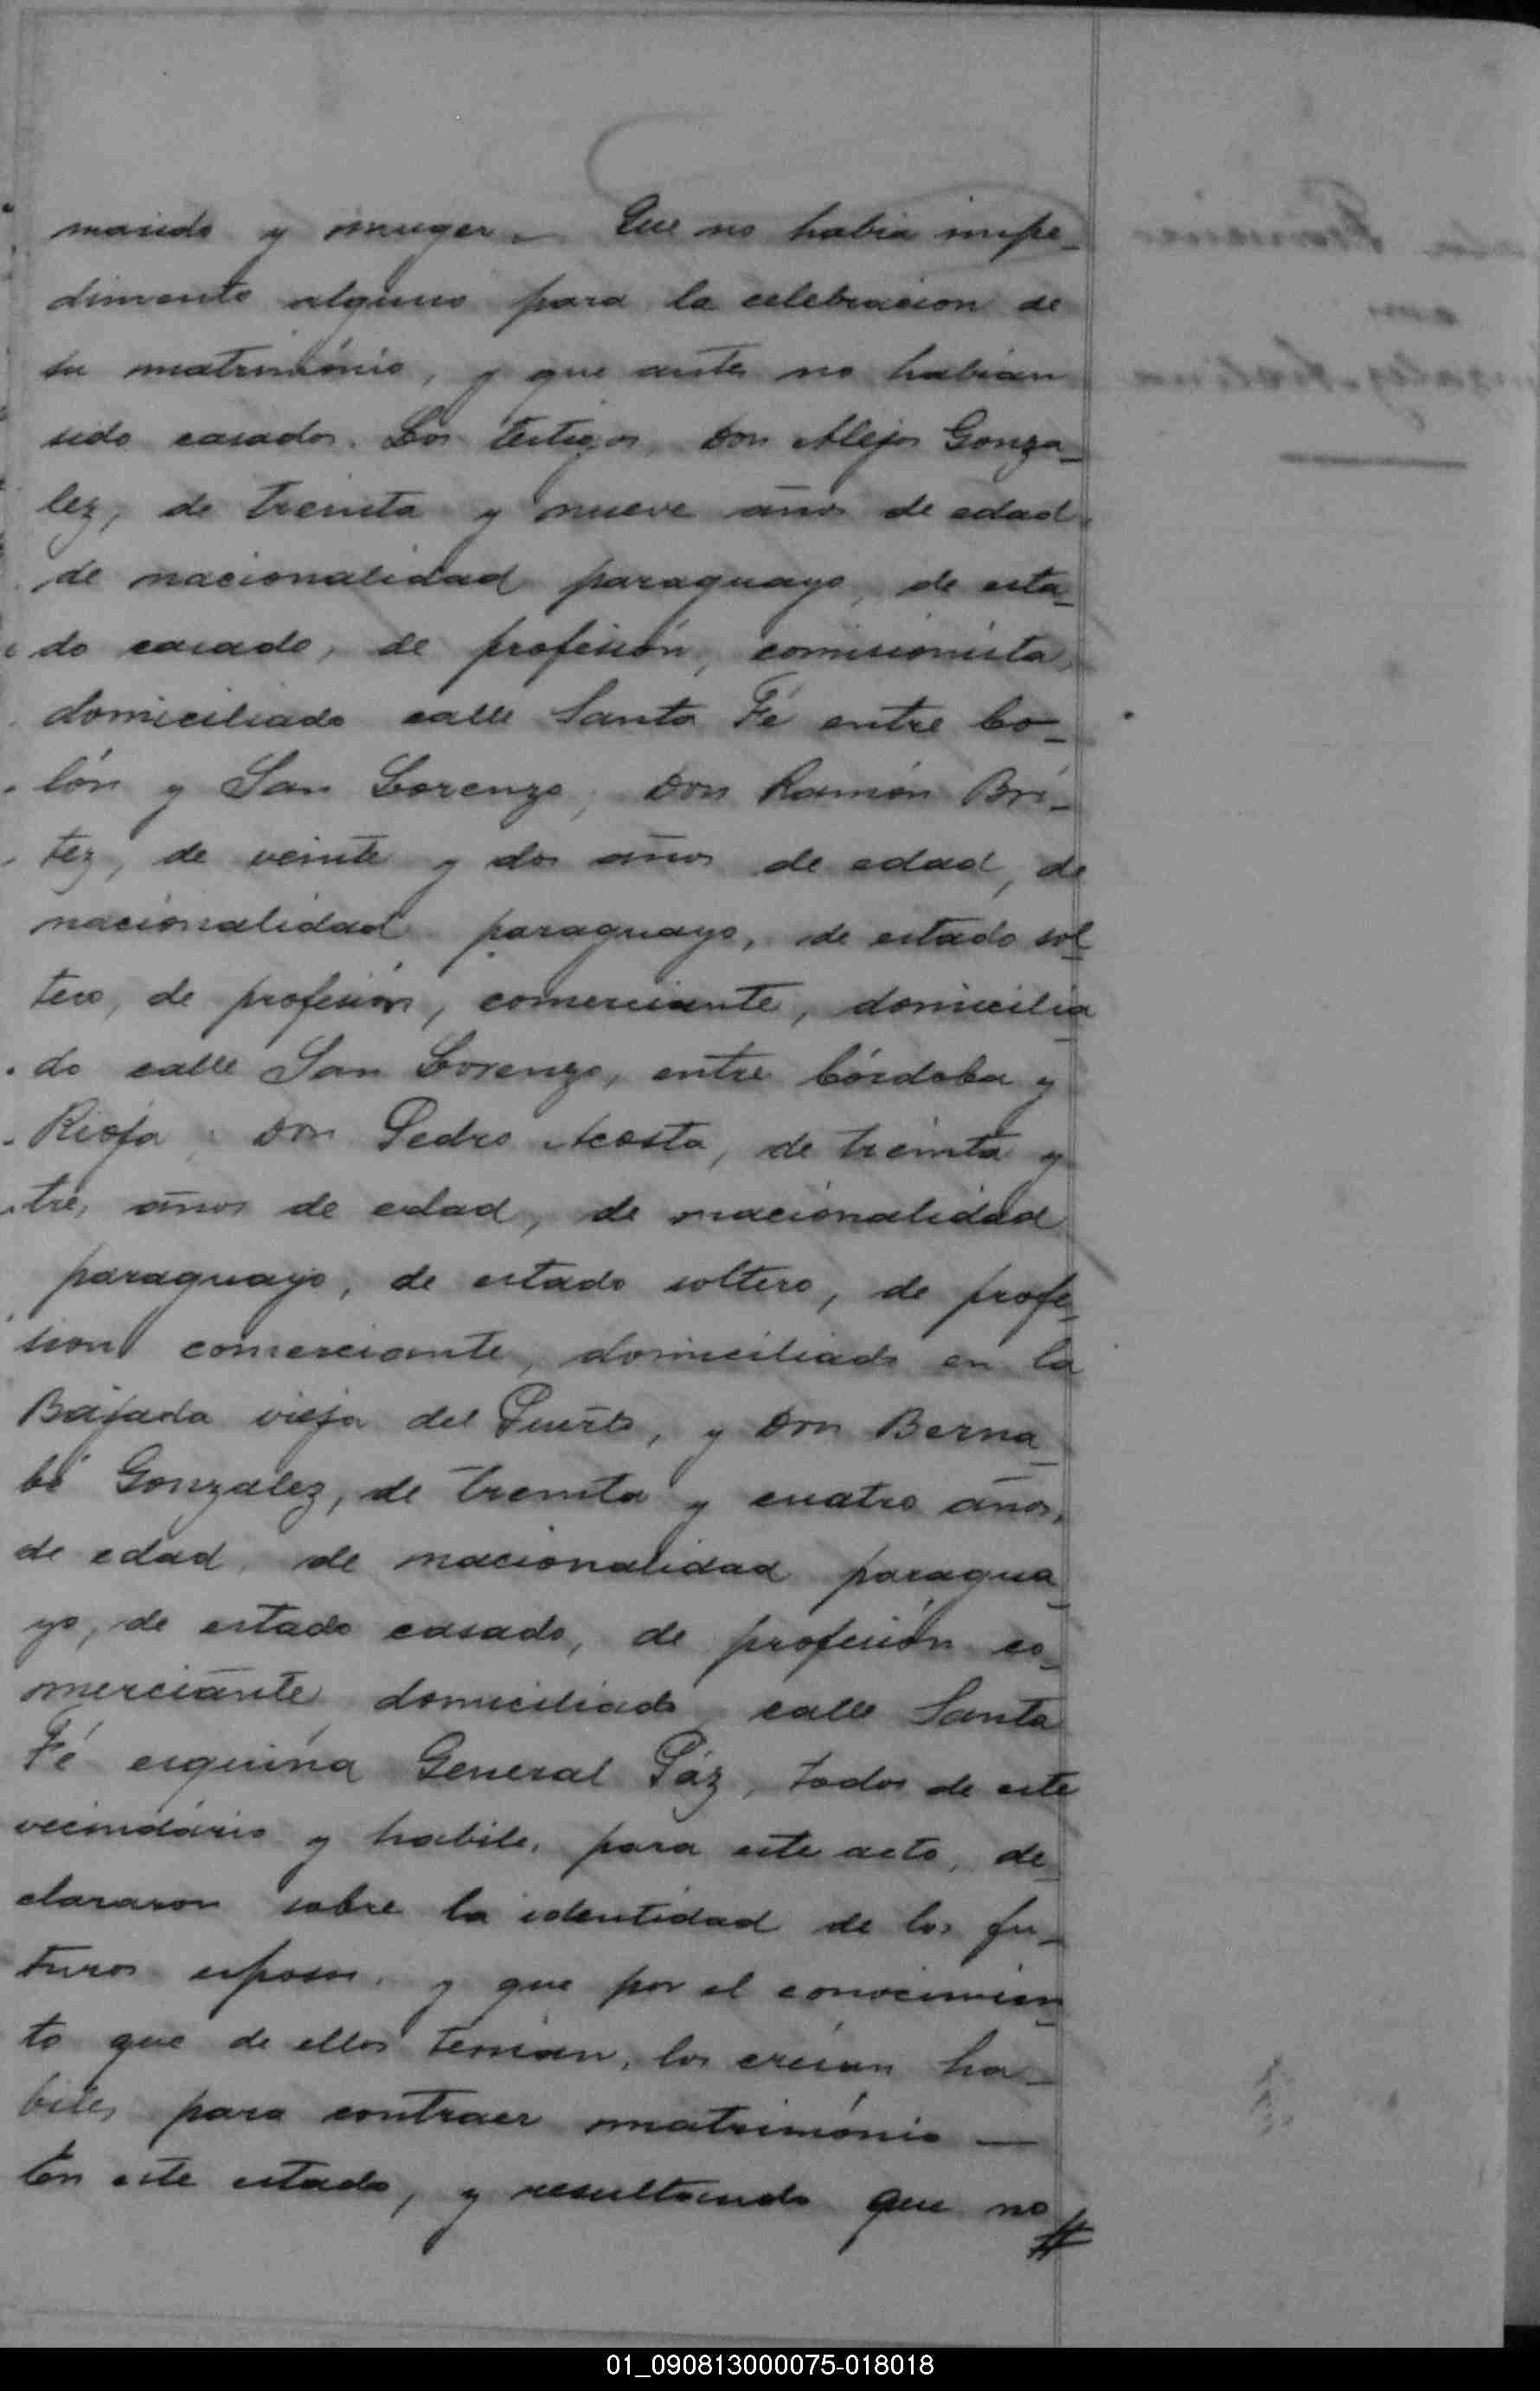 marido y muger. – Que no habia impe_
dimento alguno para la celebracion de
su matrimónio, y que antes no habian
sido casados. Los testigos, Don Alejos Gonza_
lez, de treinta y nueve años de edad,
de nacionalidad paraguayo, de esta_
do casado, de profesión, comisionista,
domiciliado calle Santa Fé entre Co_
lón y San Lorenzo, Don Ramón Bri_
tez, de veinte y dos años de edad, de
nacionalidad paraguayo, de estado sol_
tero, de profesión, comerciante, domicilia_
do calle San Lorenzo, entre Córdoba y
Rioja, Don Pedro Acosta, de treinta y
tres años de edad, de nacionalidad
paraguayo, de estado soltero, de profe_
sion comerciante, domiciliado en la
Bajada vieja del Puerto, y Don Berna_
bé Gonzalez, de treinta y cuatro años,
de edad, de nacionalidad paragua_
yo, de estado casado, de profesión co_
merciante domiciliado calle Santa
Fé esquina General Páz, todos de este
vecindário y habiles para este acto, de_
clararon sobre la identidad de los fu_
turos esposos, y que por el conocimien_
to que de ellos tenian, los creian ha_
biles para contraer matrimónio —
En este estado, y resultando que no
01_090813000075-018018